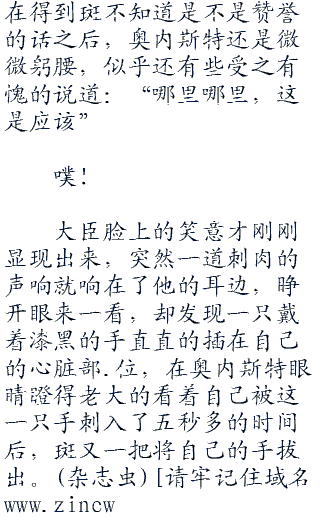 在得到斑不知道是不是赞誉
的话之后，奥内斯特还是微
微躬腰，似乎还有些受之有
愧的说道：“哪里哪里，这
是应该”
噗！
大臣脸上的笑意才刚刚
显现出来，突然一道刺肉的
声响就响在了他的耳边，睁
开眼来一看，却发现一只戴
着漆黑的手直直的插在自己
的心脏部.位，在奥内斯特眼
睛瞪得老大的看着自己被这
一只手刺入了五秒多的时间
后，斑又一把将自己的手拔
出。(杂志虫)[请牢记住域名
www.zincw